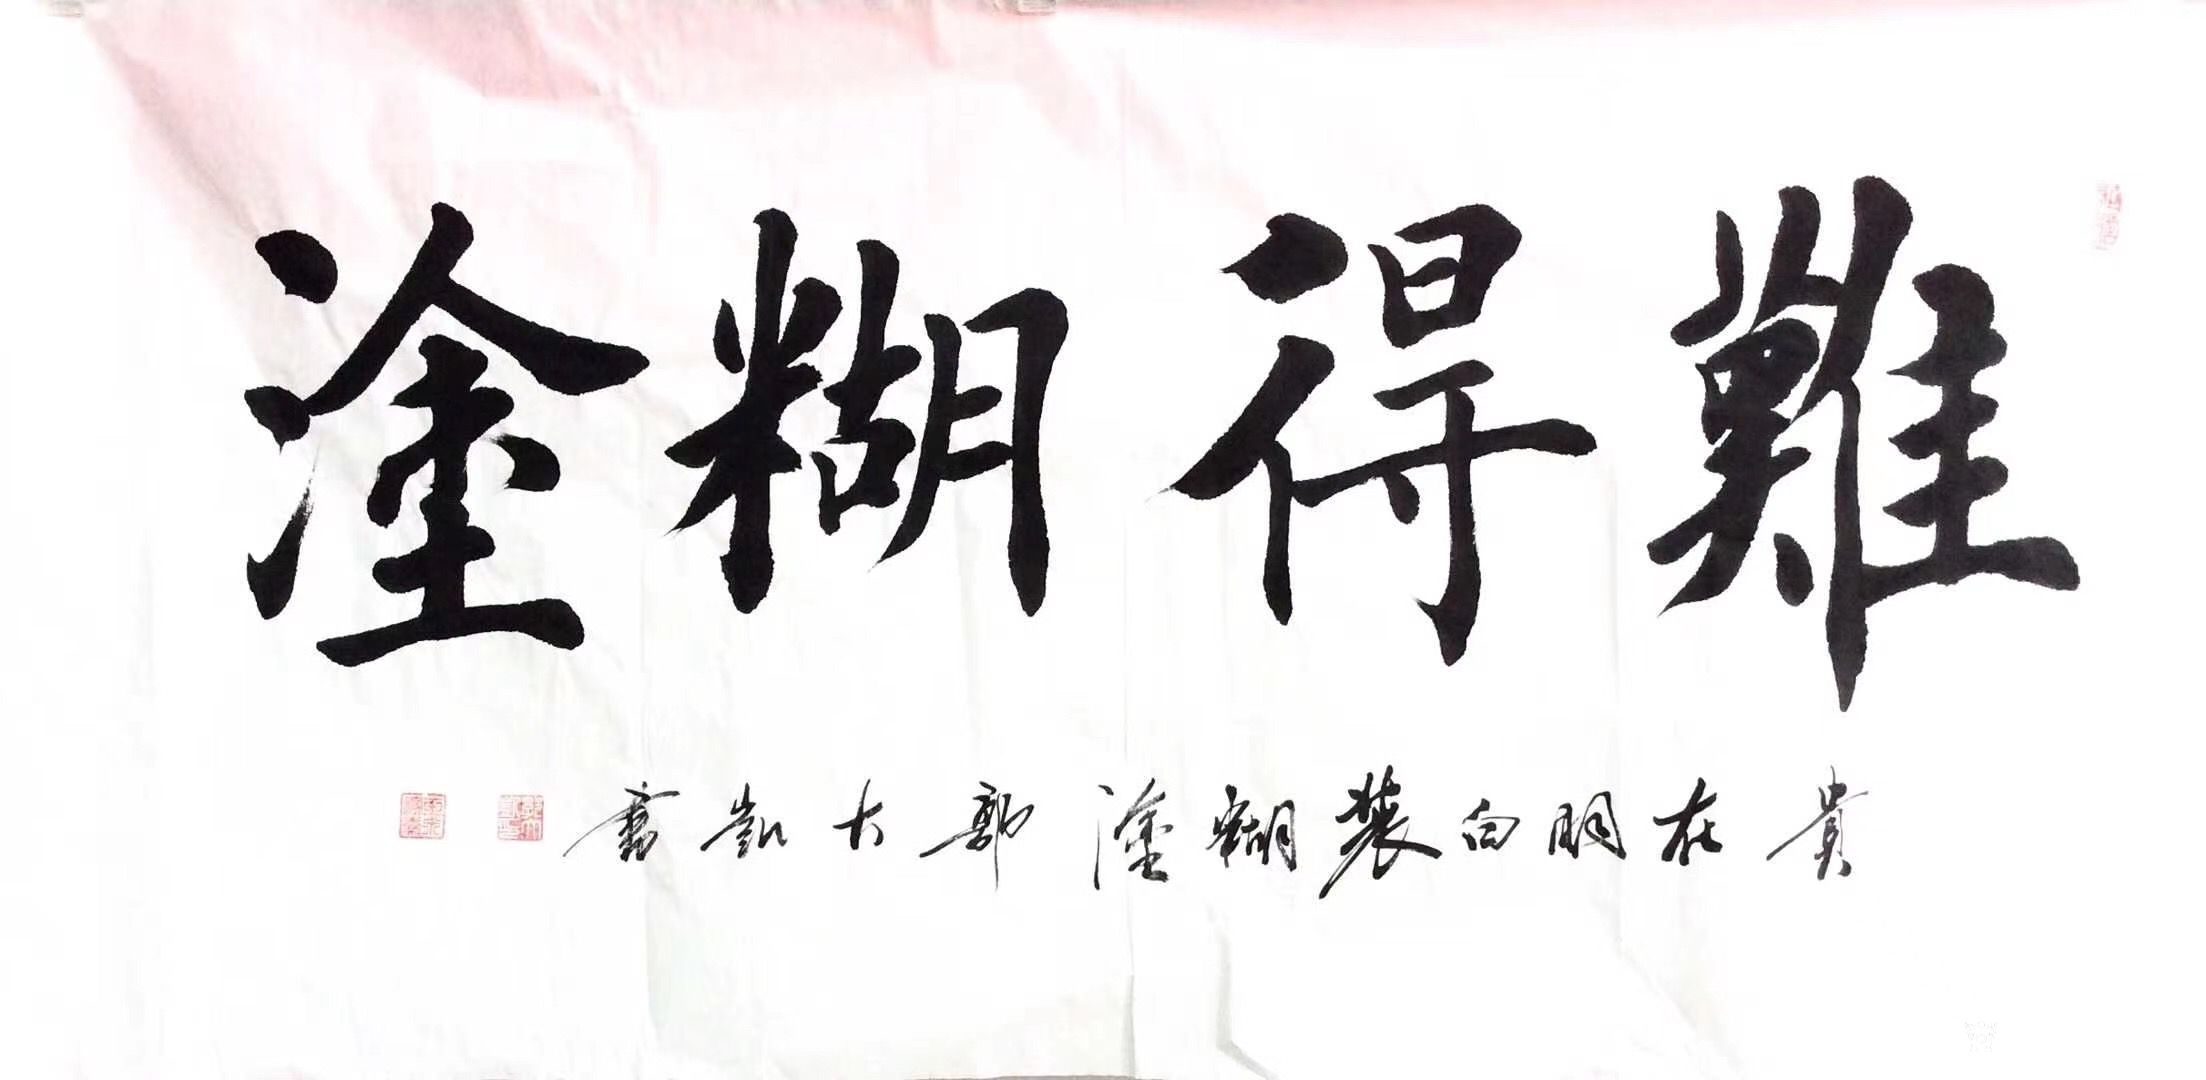 難得糊塗
貴在明白裝糊塗 郭大凱書